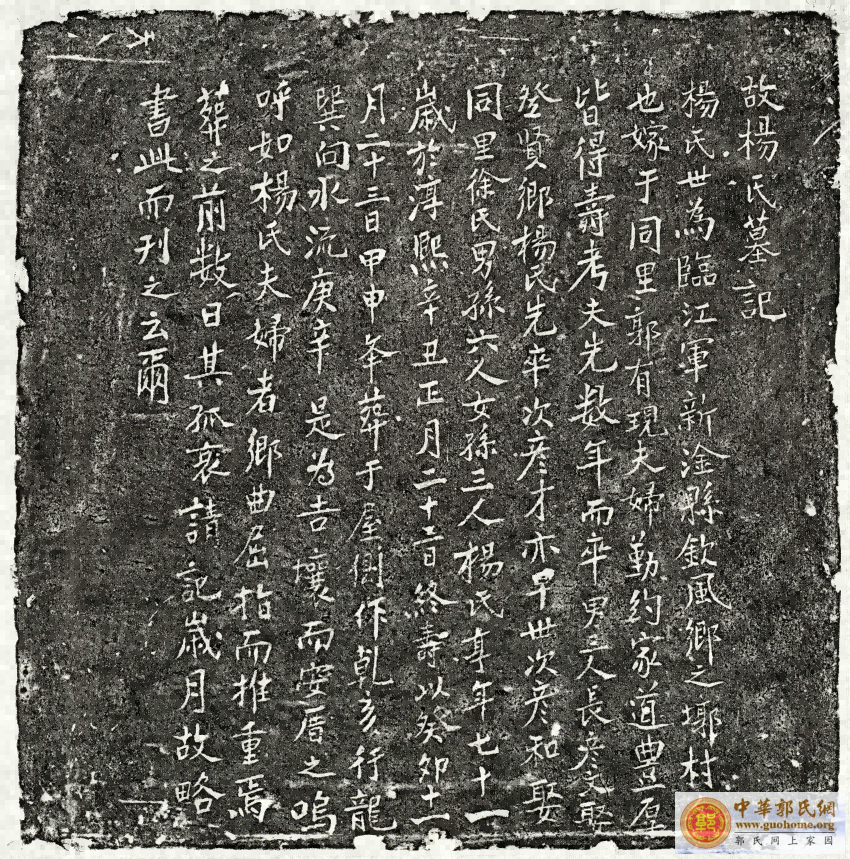 故楊氏墓記
楊氏世為臨江軍新淦縣欽風鄉之鄣村
也嫁于同里郭有現夫婦勤約家道豊厚
皆得壽考夫先数年而卒男三人長彥文娶
登賢鄉楊氏先卒次彥才亦早世次彥和娶
同里徐氏男孫六人女孫三人楊氏享年七十一
歲於淳熙辛丑正月二十二日終壽以癸卯十一
月二十三日甲申奉葬于屋側作乾亥行龍
巽向水流庚辛是為吉壤而安厝之嗚
呼如楊氏夫婦者鄉曲屈指而推重焉
葬之前数日其孤哀請記歲月故略
書此而刊之云爾
中華郭氏網
www.guohome.org
郭氏网上家园